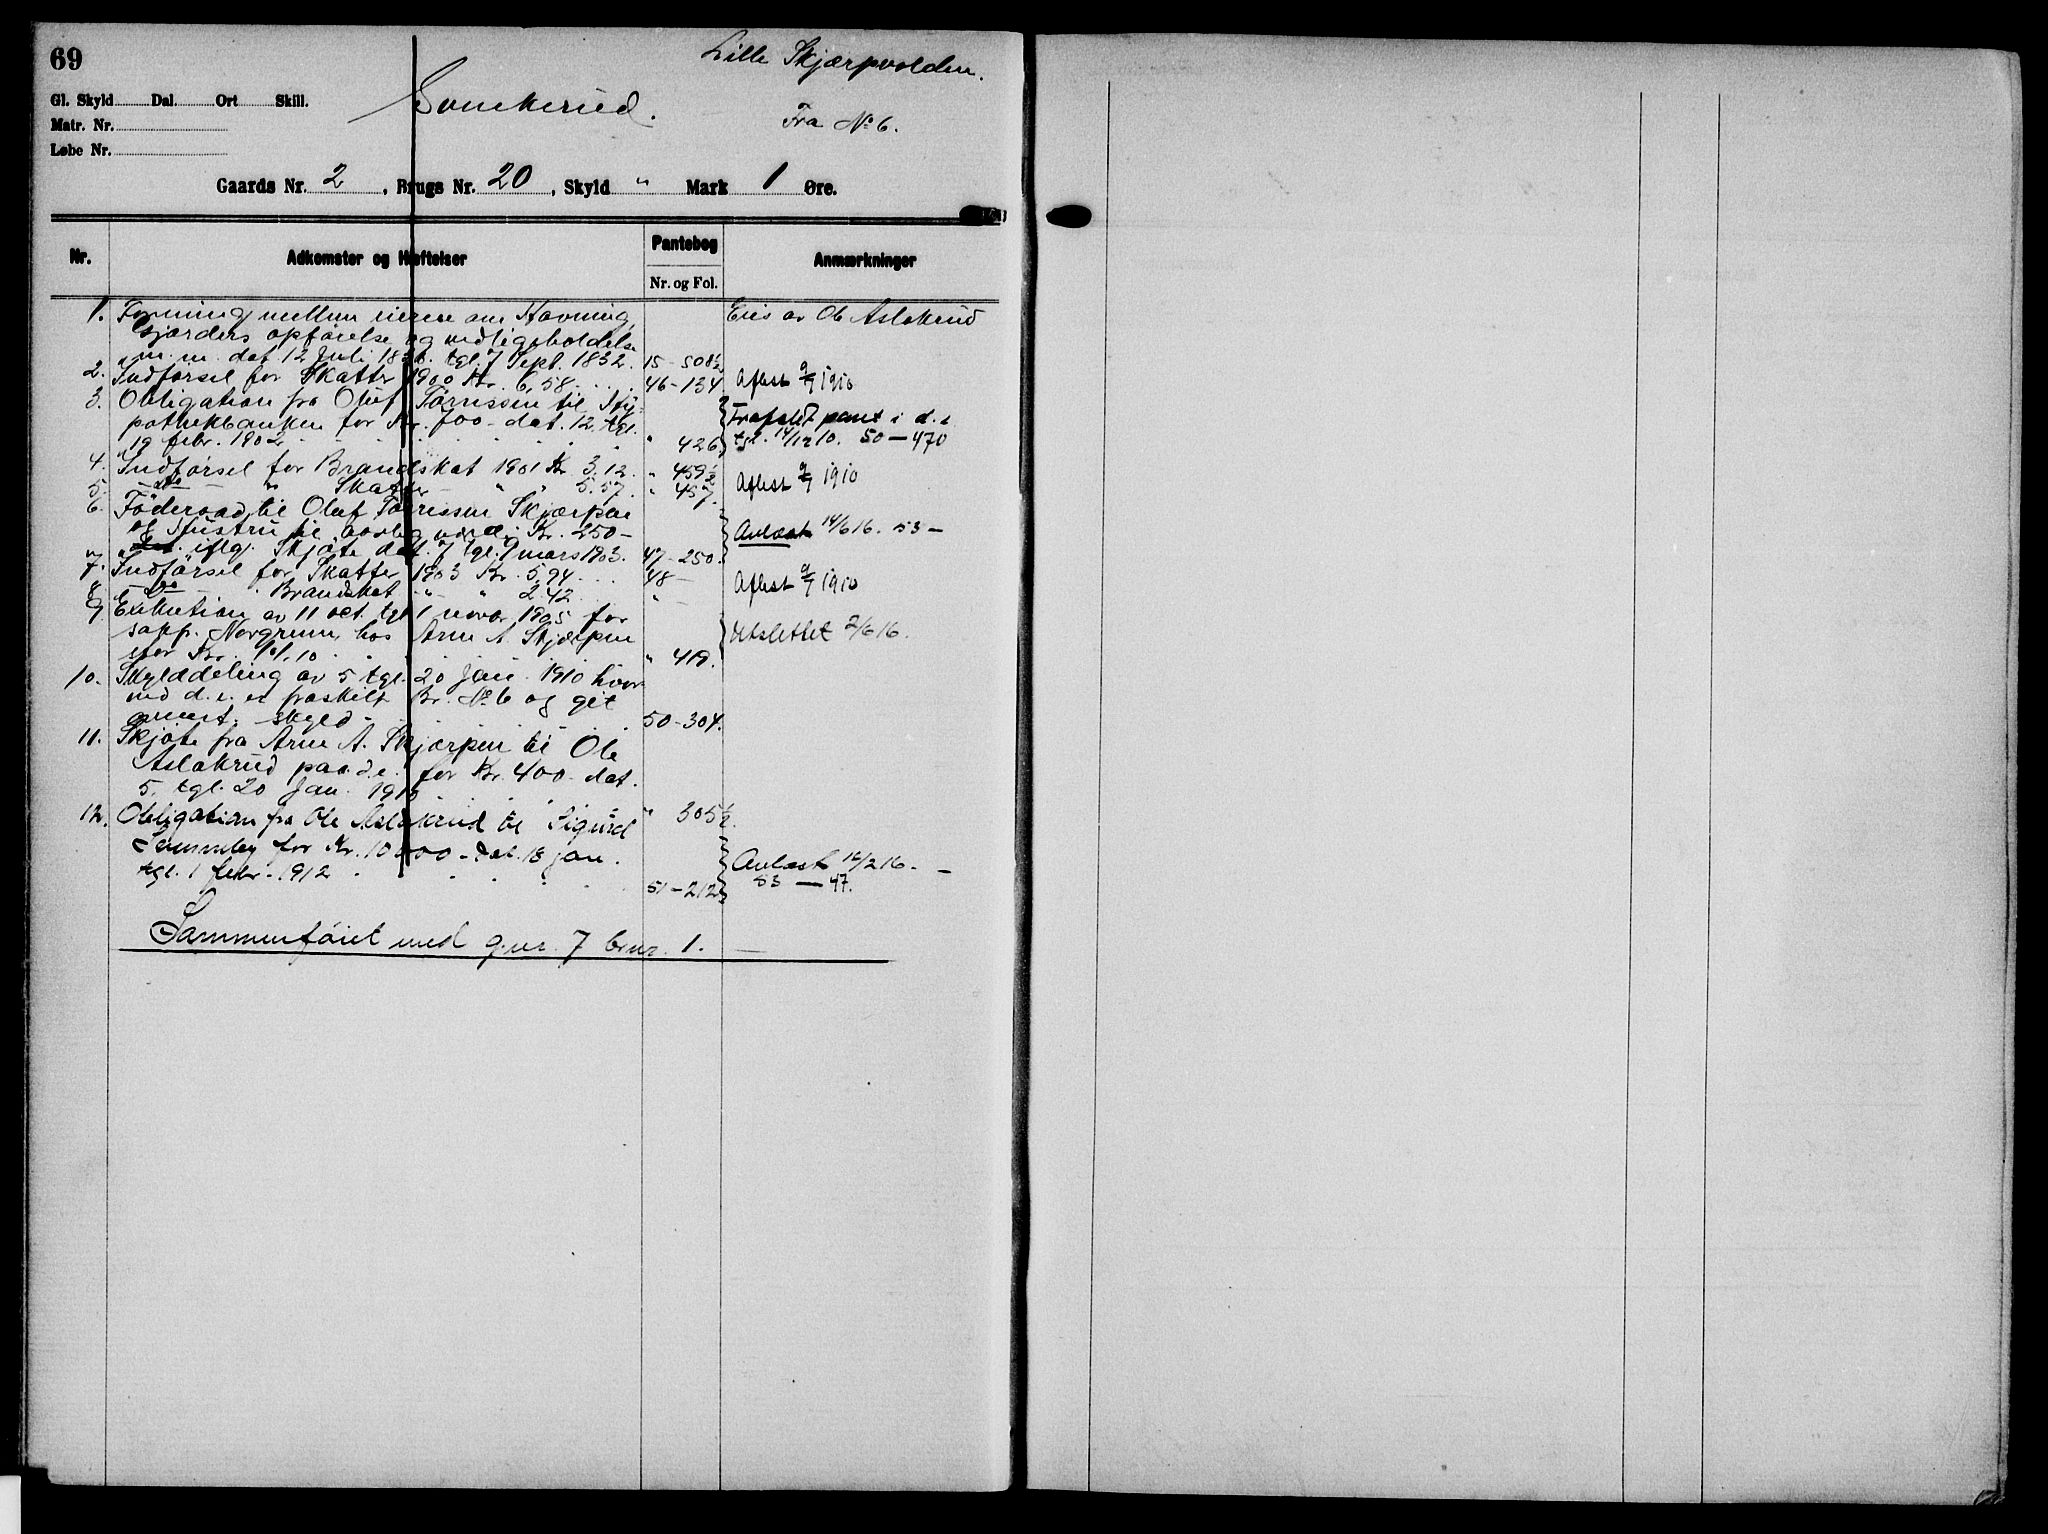 69
Lille Skjærpvolden.
Gl. Skyld Dal. Ort Skill.
Sonekerud.
Fra No 6.
Matr. Nr.
Løbe Nr.
Gaards Nr. 2, Brugs Nr. 20, Skyld " Mark 1 Øre.
Nr. Adkomster og Hæftelser Pantebog Anmærkninger
Nr. og Fol.
1. Forening mellem eierne om Havning, Eies av Ole Aslakrud
Gjærders opførelse og vedligeholdelse
m. m. dat 12 Juli tgl. 7 Sept. 1832. 15-508½
2. Indførsel for Skatter 1900 Kr. 6,58 46-134 Aflest 9/7 1910
3. Obligation fra Oluf Tørrissen til Hy- Frafaldt pant i d. e.
pothekbanken for Kr. 700- dat. 12, tgl. tgl. 14/12 10. 50-470
19 febr. 1902 " 426
4. Indførsel for Brandskat 1901 Kr 3.12 " 459½ Aflest 9/7 1910
5. - do - " Skatter " " 5.57. " 457.
6. Føderaad til Oluf Tørrissen Skjærpen
og Hustru til aarlig værdi Kr. 250- Avlæst 14/6 16. 53-
iflg. Skjøte dat. 7 tgl. 9 mars 1903. 47-250.
7. Indførsel for Skatter 1903 Kr. 5.94 48- Aflest 9/7 1910
8. - Do - " Brandskat " " 2.42 " -
9. Exekution av 11 oct. tgl 1 novbr 1905 for
sapf. Norgrenn hos Arne A Skjærpen Utslettet 2/6 16.
stor Kr. " 419.
10. Skylddeling av 5 tgl. 20 Jan. 1910 hvor-
ved d. e. er fraskilt Br. No 6 og git
anført skyld. 50-304.
11. Skjøte fra Arne A. Skjærpen til Ole
Aslakrud paa d. e. for Kr. 400- dat.
5. tgl. 20 Jan. 1910 " 305½.
12. Obligation fra Ole Aslakrud til Sigurd
for Kr. 10000- dat. 18 jan. Avlæst 16/2 16. -
tgl. 1 febr. 1912 51-212 53 - 47.
Sammenføiet med gnr. 7 brnr. 1.